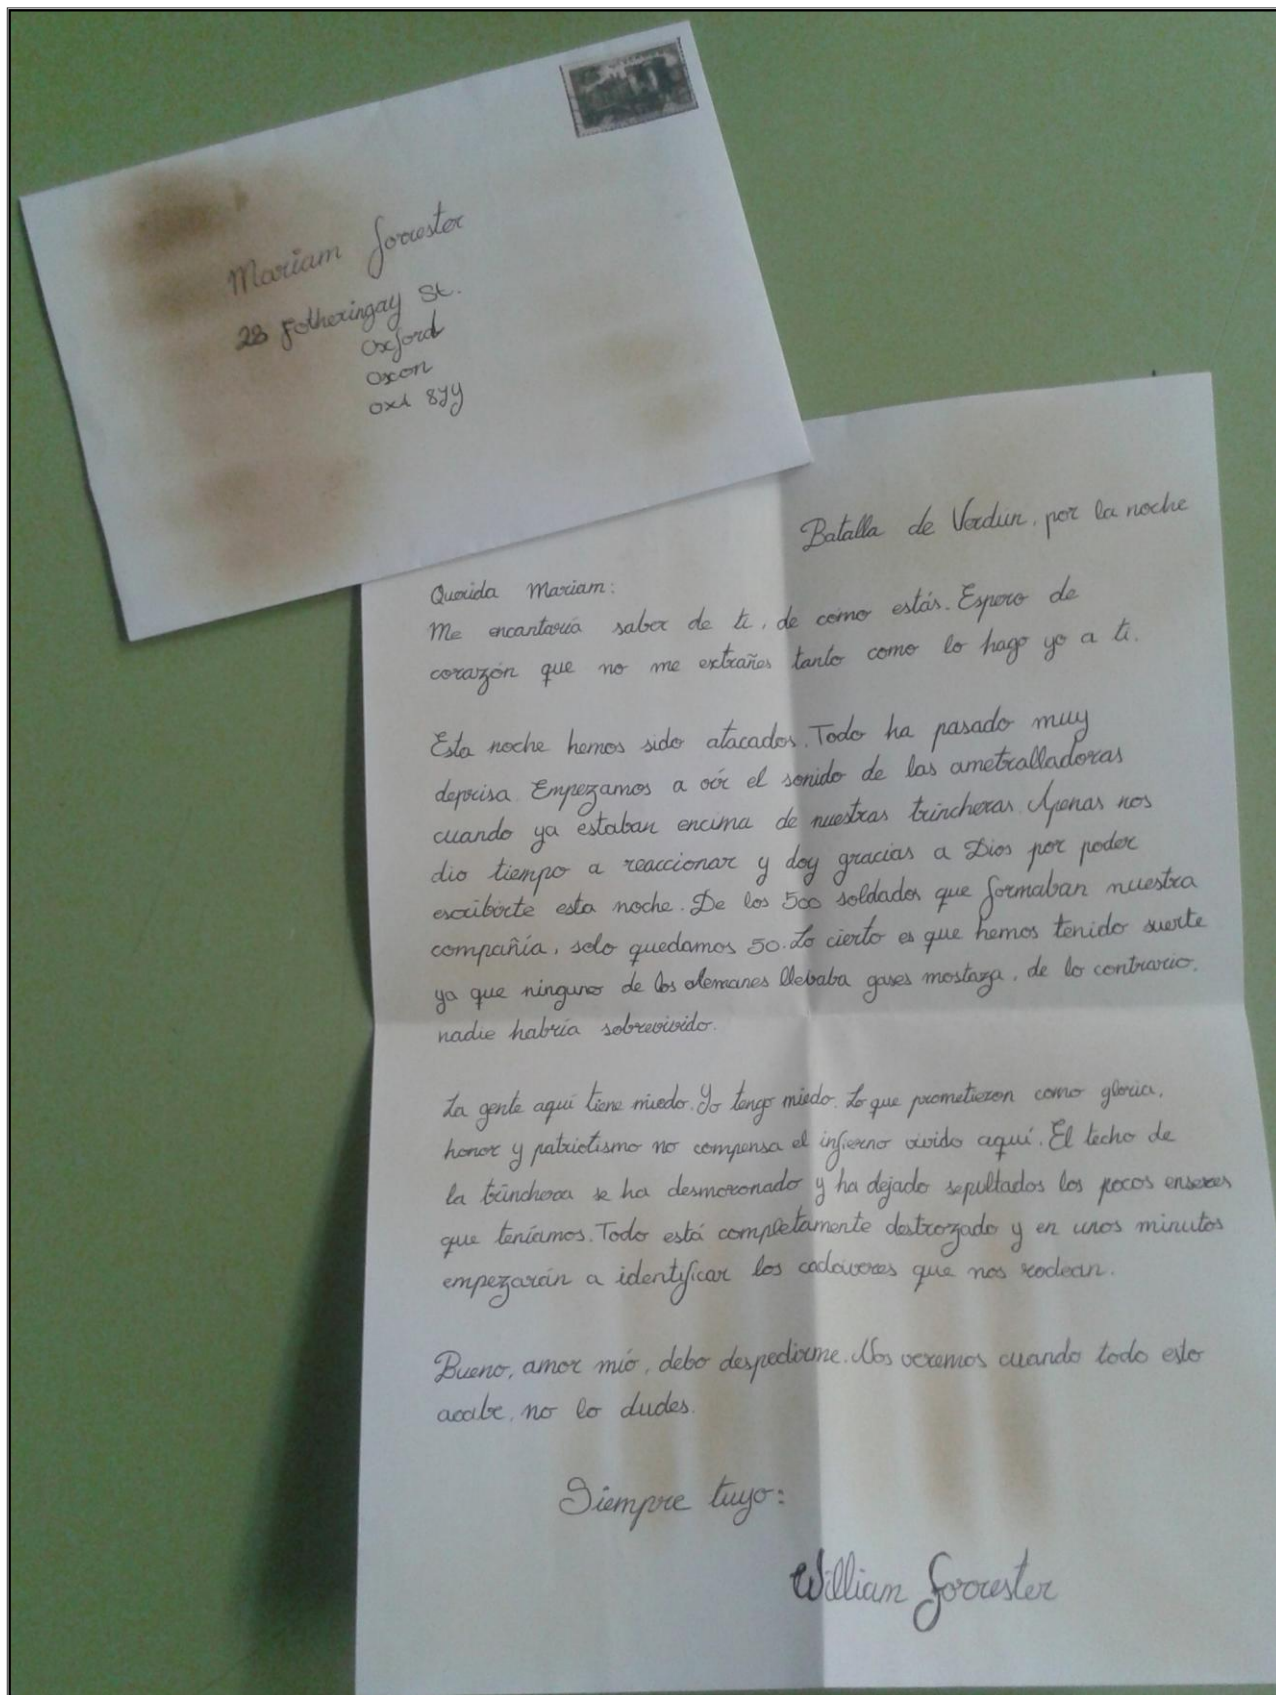 Mariam Forrester
28 Fotheringay St.
Oxford
Oxon
OX1 8YY
Batalla de Verdún, por la noche
Querida Mariam:
Me encantaría saber de ti, de cómo estás. Espero de
corazón que no me extrañes tanto como lo hago yo a ti.
Esta noche hemos sido atacados. Todo ha pasado muy
deprisa. Empezamos a oír el sonido de las ametralladoras
cuando ya estaban encima de nuestras trincheras. Apenas nos
dio tiempo a reaccionar y doy gracias a Dios por poder
escribirte esta noche. De los 500 soldados que formaban nuestra
compañía, solo quedamos 50. Lo cierto es que hemos tenido suerte
ya que ninguno de los alemanes llebaba gases mostaza, de lo contrario,
nadie habría sobrevivido.
La gente aquí tiene miedo. Yo tengo miedo. Lo que prometieron como gloria,
honor y patriotismo no compensa el infierno vivido aquí. El techo de
la trinchera se ha desmoronado y ha dejado sepultados los pocos enseres
que teníamos. Todo está completamente destrozado y en unos minutos
empezarán a identificar los cadáveres que nos rodean.
Bueno, amor mío, debo despedirme. Nos veremos cuando todo esto
acabe, no lo dudes.
Siempre tuyo:
William Forrester